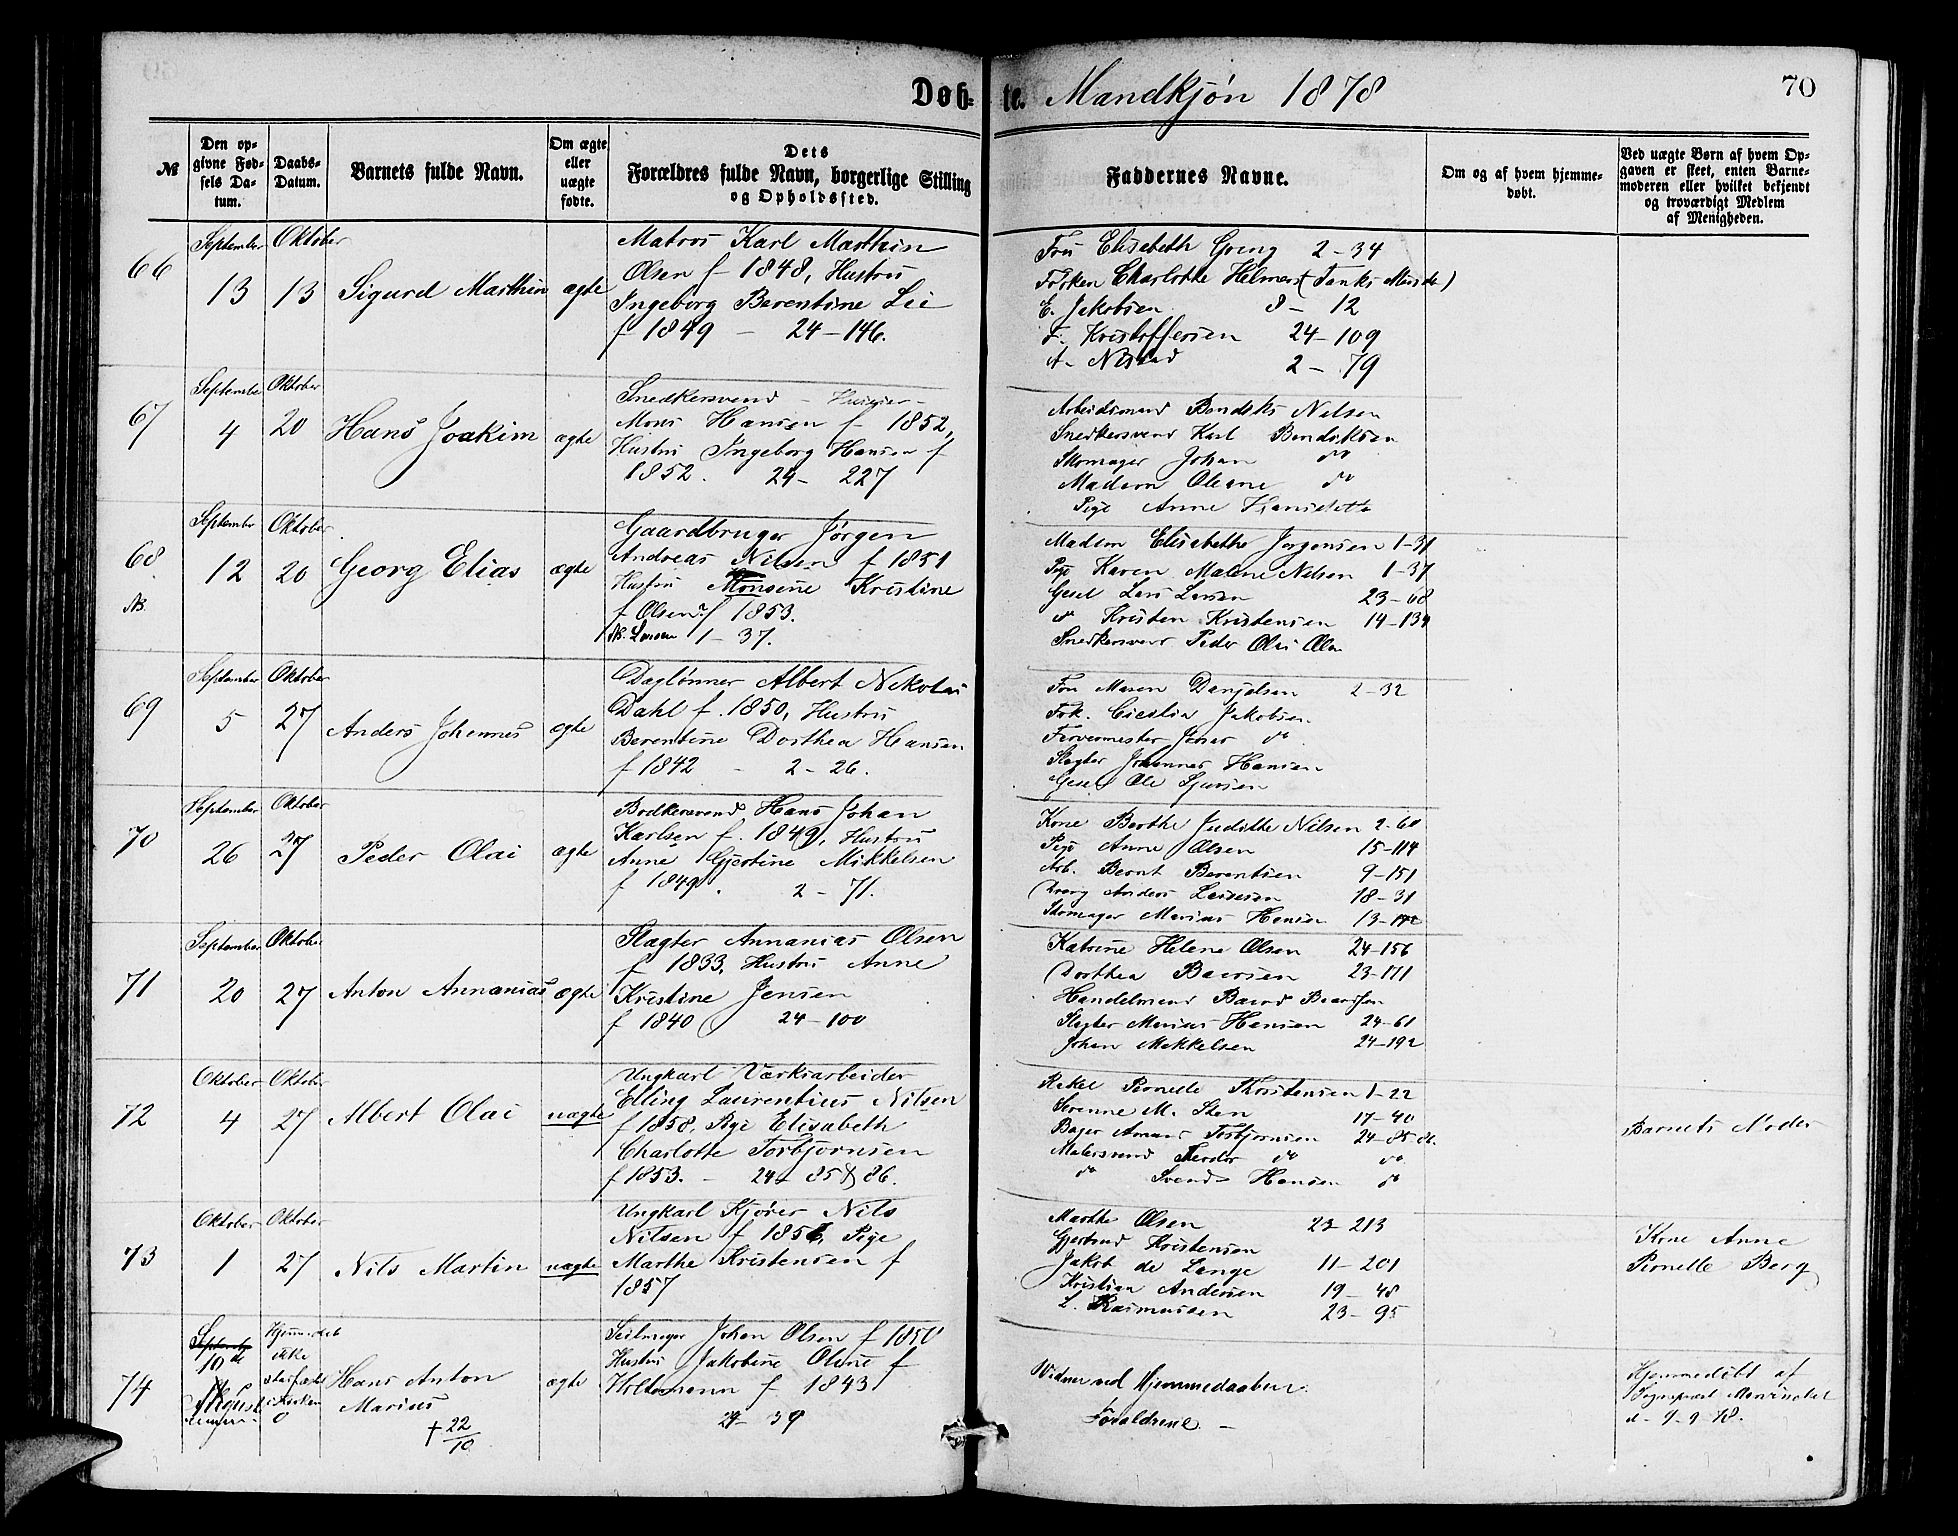 Døb-te. Mandkjøn 1878
70
№
Den op-
givne Fød-
sels Da-
tum.
Daabs-
Datum.
Barnets fulde Navn.
Om ægte
eller
uægte
fødte.
Dets
Forældres fulde Navn, borgerlige Stilling
og Opholdssted.
Faddernes Navne.
Om og af hvem hjemme-
døbt.
Ved uægte Børn af hvem Op-
gaven er skeet, enten Barne-
moderen eller hvilket bekjendt
og troværdigt Medlem
af Menigheden.
66
September
13
Oktober
13
Sigurd Marthin
ægte
Matros Karl Marthin
Olsen f 1848, Hustru
Ingeborg Berentine Lie
f 1849 — 24-146.
Fru Elisabeth 2-34
Frøken Charlotte Helmers
E. Jakobsen 8-12
F. Kristoffersen 24-109
2-79
67
September
4
Oktober
20
Hans Joakim
ægte
Snedkersvend
Mons Hansen f 1852,
Hustru Ingeborg Hansen f
1852. 24- 227
Arbeidsmand Bendik Nilsen
Snedkersvend Karl Bendiksen
Skomager Johan do
Madam Oleane do
Pige Anne
68.
NB.
September
12
Oktober
20
Georg Elias
ægte
Gaardbruger Jørgen
Andreas Nilsen f 1851
Hustru Monsine Kristine
f Olsen f 1853.
NB. Larsen 1-37.
Madam Elisabethe Jørgensen 1-31
Pige Karen Malene Nilsen 1-37
Gesel Lars Larsen 23-68
do Kristen Kristensen 14-134
Snedkersvend Peder Olai Olsen
69
September
5
Oktober
27
Anders Johannes
ægte
Dagløner Albert Nikolai
Dahl f. 1850, Hustru
Berentine Dorthea Hansen
f 1842 - 2-26.
Fru Maren Danjelsen 2-32
Frk. Cicelia Jakobsen
Farvermester do
Slagter Johannes Hansen
Gesel Ole Sjursen
70
September
26
Oktober
27
Peder Olai
ægte
Bødkersvend Hans Johan
Karlsen f. 1849, Hustru
Anne Gjertine Mikkelsen
f 1849. 2-71.
Kone Berthe Judithe Nilsen 2-60
Pige Anne Olsen 15-114
Arb. Bernt Berentsen 9-151
Dreng Anders 18-31
Skomager Marius Hansen
71
September
20
Oktober
27
Anton Annanias
ægte
Slagter Annanias Olsen
f 1833, Hustru Anne
Kristine Jensen
f 1840 24-100
Katrine Helene Olsen 24-156
Dorthea Baardsen 23-171
Handelsmand Baard Baardsen
Slagter Marius Hansen 24-61
Johan Mikkelsen 24-192
72
Oktober
4
Oktober
27
Albert Olai
uægte
Ungkarl Værksarbeider
Elling Laurentius Nilsen
f 1858, Pige Elisabeth
Charlotte Torbjørnsen
f 1853. - 24-85 & 86.
Rakel Pernelle Thorstensen 1-22
Serenne M. Sten 17-40
Bager Torbjørnsen 24-85-86.
Malersvend Theodor do do
do Svend Hansen do
Barnets Moder
73
Oktober
1
Oktober
27
Nils Martin
uægte
Ungkarl Kjører Nils
Nilsen f 1856, Pige
Marthe Kristensen f
1857
Marthe Olsen 23-213
Gjertrud Kristensen
Jakob de Lange 11-201
Kristian Andersen 19-48
L. Rasmussen 23-95
Kone Anne
Pernelle Berg
74
September
10de
August
Hjemmedøb
ikke
stadfæstet
i Kirken
0
Hans Anton
Marius
† 22/10
ægte
Seilmager Johan Olsen f 1850
Hustru Jakobine Oline f
Holtemann f 1843
24- 39
Vidner ved Hjemmedaaben:
Forældrene —
Hjemmedøbt af
Sognepræst
d- 9-9 78.